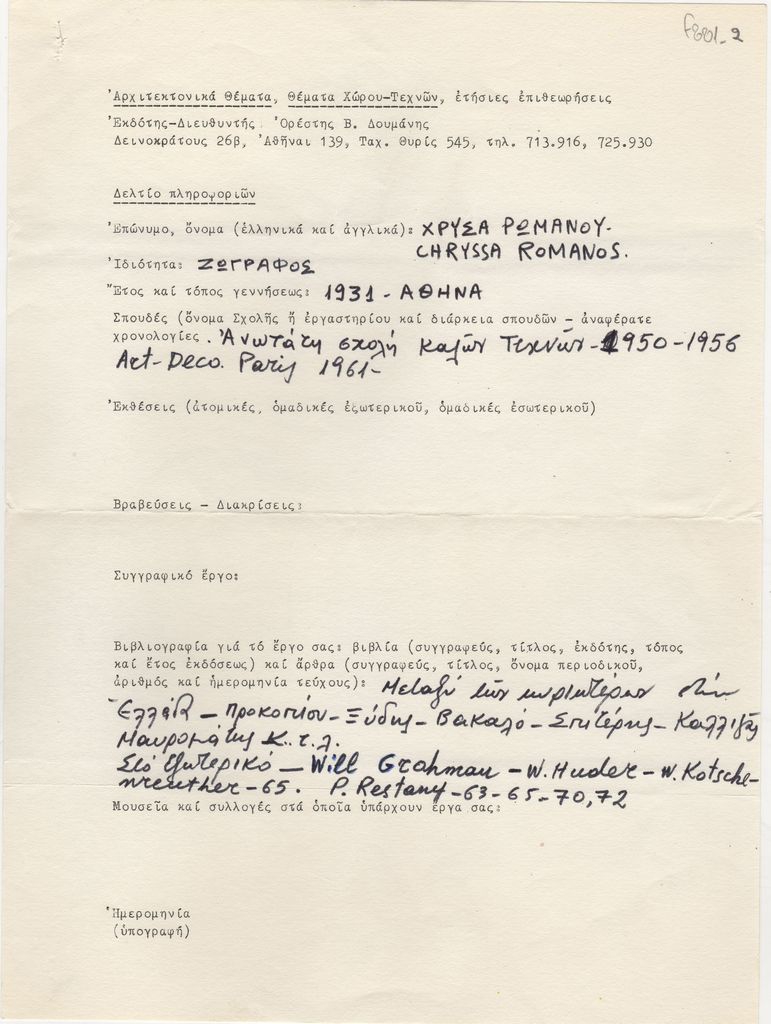 'Αρχιτεκτονικά Θέματα, Θέματα Χώρου-Τεχνῶν, ἐτήσιες ἐπιθεωρήσεις
'Εκδότης-Διευθυντής 'Ορέστης Β. Δουμάνης
Δεινοκράτους 26β, 'Αθῆναι 139, Ταχ. Θυρίς 545, τηλ. 713.916, 725.930
Δελτίο πληροφοριῶν
'Επώνυμο, ὄνομα (ἑλληνικά καί ἀγγλικά): ΧΡΥΣΑ ΡΩΜΑΝΟΥ-
CHRYSSA ROMANOS.
'Ιδιότητα: ΖΩΓΡΑΦΟΣ
Ἔτος καί τόπος γεννήσεως: 1931 - ΑΘΗΝΑ
Σπουδές (ὄνομα Σχολῆς ἤ ἐργαστηρίου καί διάρκεια σπουδῶν - ἀναφέρατε
χρονολογίες. Ἀνωτάτη σχολή Καλῶν Τεχνῶν - 1950-1956
Art-Deco. Paris 1961-
'Εκθέσεις (ἀτομικές, ὁμαδικές ἐξωτερικοῦ, ὁμαδικές ἐσωτερικοῦ)
Βραβεύσεις - Διακρίσεις:
Συγγραφικό ἔργο:
Βιβλιογραφία γιά τό ἔργο σας: βιβλία (συγγραφεύς, τίτλος, ἐκδότης, τόπος
καί ἔτος ἐκδόσεως) καί ἄρθρα (συγγραφεύς, τίτλος, ὄνομα περιοδικοῦ,
ἀριθμός καί ἡμερομηνία τεύχους): Μεταξύ τῶν κυριωτέρων στήν
Ἑλλάδα - Προκοπίου - Ξύδης - Βακαλό - Σπιτέρης - Καλλιγᾶς
Μαυρομάτης κ.τ.λ.
Στό ἐξωτερικό - Will Grohman - W. Huder - W. Kotsche-
nreuther - 65. P. Restany - 63 - 65 - 70, 72
Μουσεῖα καί συλλογές στά ὁποῖα ὑπάρχουν ἔργα σας:
'Ημερομηνία
(ὑπογραφή)